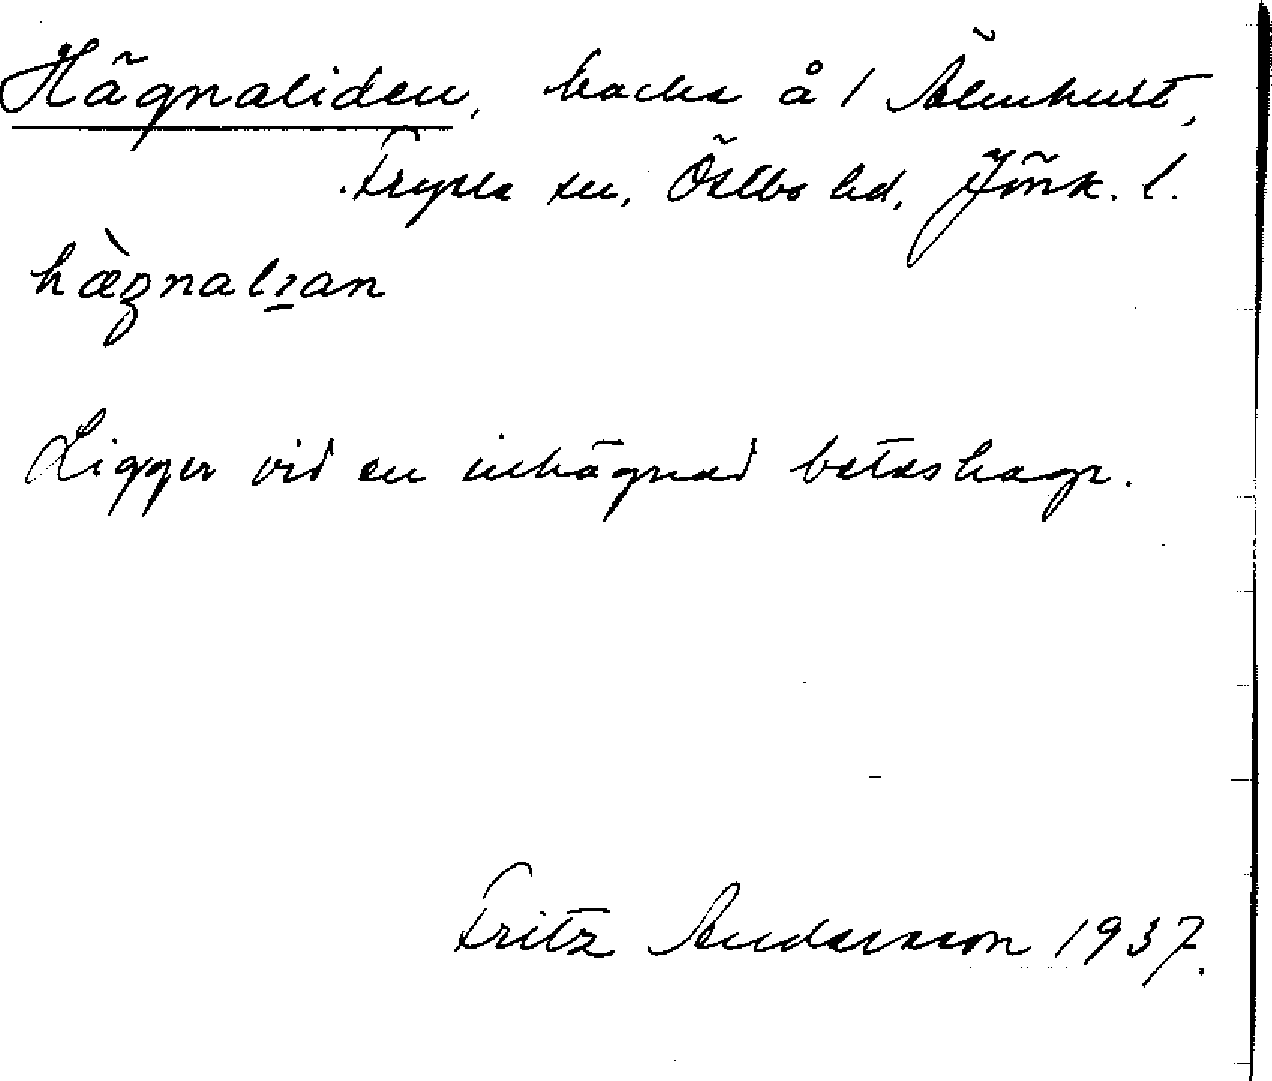 Hägnaliden, backe å 1 Älmhult,
Fryele sn, Östbo hd, Jönk. l.
hægnalıan
Ligger vid en inhägnad beteshage.
Fritz Andersson 1937.